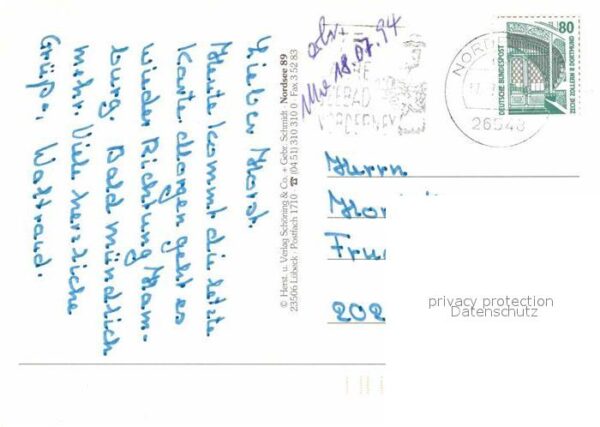 Lieber Horst.
Heute kommt die letzte
Karte. Morgen geht es
wieder Richtung Ham-
burg. Bald mündlich
mehr. Viele herzliche
Grüße, Waltraud.
© Herst. u. Verlag Schöning & Co. + Gebr. Schmidt · Nordsee 89
23506 Lübeck · Postfach 1710 · ☎ (04 51) 310 310 0 · Fax 3 52 83
18.07.94
SEEBAD
NORDERNEY
NORDE
26548
80
DEUTSCHE BUNDESPOST
ZECHE ZOLLERN II DORTMUND
Herrn
Hor
Fru
202
privacy protection
Datenschutz